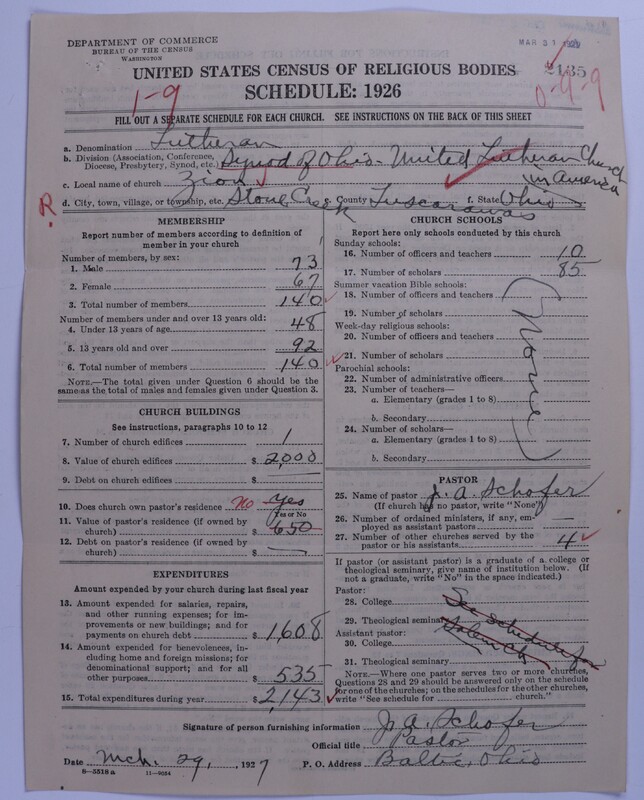 DEPARTMENT OF COMMERCE
BUREAU OF THE CENSUS
WASHINGTON
MAR 31
UNITED STATES CENSUS OF RELIGIOUS BODIES
SCHEDULE: 1926
1-9
0-9-9
FILL OUT A SEPARATE SCHEDULE FOR EACH CHURCH. SEE INSTRUCTIONS ON THE BACK OF THIS SHEET
a. Denomination Lutheran
b. Division (Association, Conference, Diocese, Presbytery, Synod, etc.) Synod of Ohio - United Lutheran Church in America
c. Local name of church Zion
R
d. City, town, village, or township, etc. Stone Creek e. County Tuscarawas f. State Ohio
MEMBERSHIP
Report number of members according to definition of
member in your church
Number of members, by sex:
1. Male 73
2. Female 67
3. Total number of members 140
Number of members under and over 13 years old:
4. Under 13 years of age 48
5. 13 years old and over 92
6. Total number of members 140
NOTE.—The total given under Question 6 should be
same as the total of males and females given under Question 3.
CHURCH BUILDINGS
See instructions, paragraphs 10 to 12
7. Number of church edifices 1
8. Value of church edifices $ 2,000
9. Debt on church edifices $ —
10. Does church own pastor's residence No Yes
Yes or No
11. Value of pastor's residence (if owned by
church) $ 650
12. Debt on pastor's residence (if owned by
church) $ —
EXPENDITURES
Amount expended by your church during last fiscal year
13. Amount expended for salaries, repairs,
and other running expenses; for im-
provements or new buildings; and for
payments on church debt $ 1,608
14. Amount expended for benevolences, in-
cluding home and foreign missions; for
denominational support; and for all
other purposes 535
15. Total expenditures during year $ 2,143
CHURCH SCHOOLS
Report here only schools conducted by this church
Sunday schools:
16. Number of officers and teachers 10
17. Number of scholars 85
Summer vacation Bible schools:
18. Number of officers and teachers
19. Number of scholars
Week-day religious schools:
20. Number of officers and teachers
21. Number of scholars
Parochial schools:
22. Number of administrative officers
23. Number of teachers—
a. Elementary (grades 1 to 8)
b. Secondary
24. Number of scholars—
a. Elementary (grades 1 to 8)
b. Secondary
None
PASTOR
25. Name of pastor J. A. Schofer
(If church has no pastor, write "None")
26. Number of ordained ministers, if any, em-
ployed as assistant pastors —
27. Number of other churches served by the
pastor or his assistants 4
If pastor (or assistant pastor) is a graduate of a college or
theological seminary, give name of institution below. (If
not a graduate, write "No" in the space indicated.)
Pastor:
28. College
29. Theological seminary
See Schedule for
Assistant pastor:
30. College
31. Theological seminary
NOTE.—Where one pastor serves two or more churches,
Questions 28 and 29 should be answered only on the schedule
for one of the churches; on the schedules for the other churches,
write "See schedule for
Signature of person furnishing information J. A. Schofer
Official title Pastor
Date Mch. 29, 1927 P. O. Address Baltic, Ohio
8—5518 a 11—9034